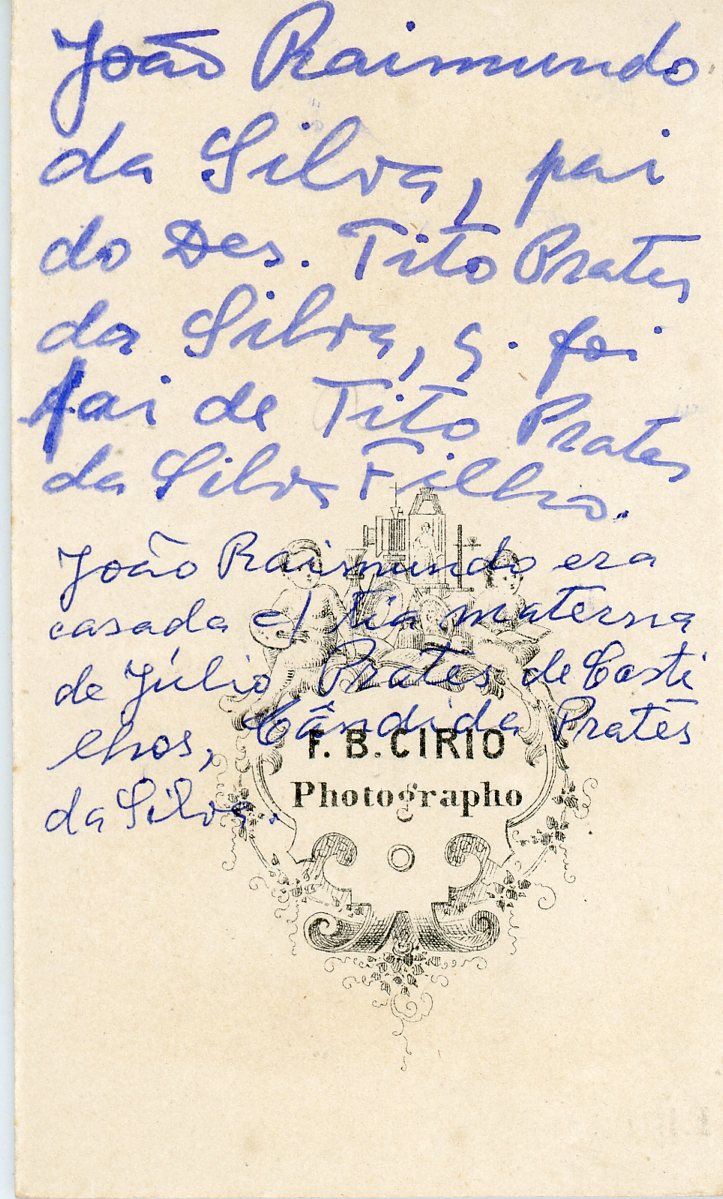 João Raimundo
da Silva, pai
do Des. Tito Prates
da Silva, q. foi
pai de Tito Prates
da Silva Filho.
João Raimundo era
casada c/ tia materna
de Júlio Prates de Casti
lhos, Cândida Prates
da Silva.
F. B. CIRIO
Photographo